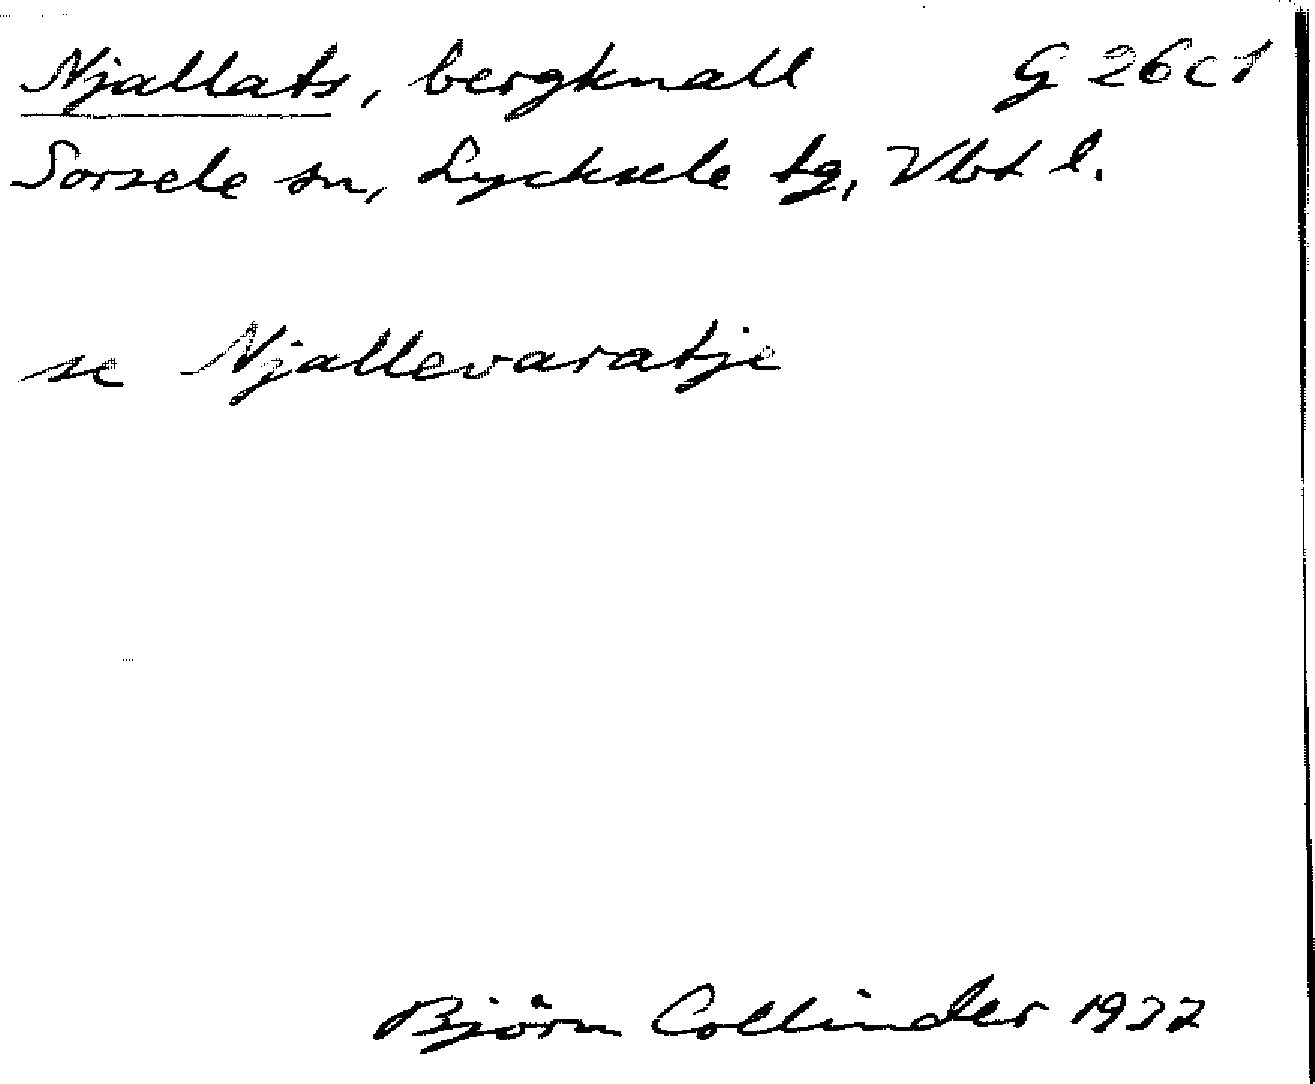 Njallats, bergknall G 26c1
Sorsele sn, Lycksele tg, Vbt l.
se Njallevaratje
Björn Collinder 1937